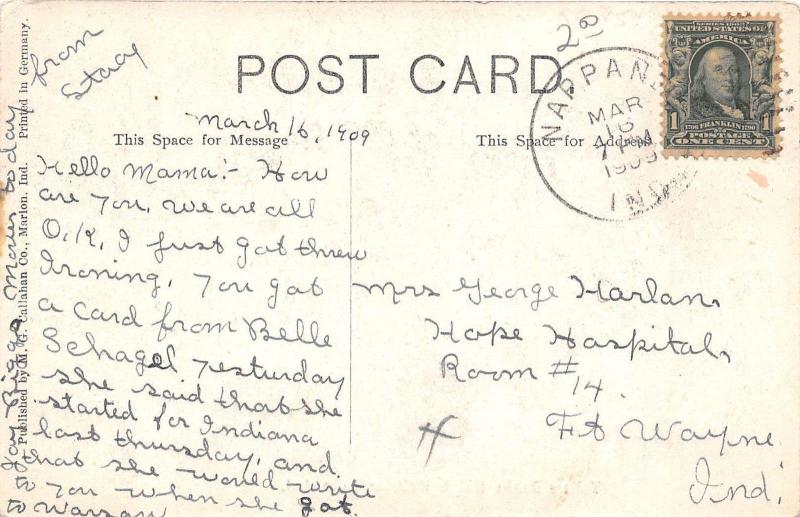 POST CARD.
March 16, 1909
This Space for Message
Hello Mama:- How
are you, we are all
O.K. I just got threw
Ironing, you got
a card from Belle
Schagel yesturday
she said that she
started for Indiana
last thursday, and
that she would write
to you when she got
to Warsaw
from
Stacy
Jay Biggs Moves today
Published by M. G. Callahan Co., Marion, Ind. Printed in Germany.
This Space for Address
Mrs George Harlan,
Hope Hospital,
Room #14.
Ft Wayne
Ind.
NAPPANEE
MAR
16
1909
IND
SERIES 1902
UNITED STATES OF
AMERICA
1 1706 FRANKLIN 1790 1
POSTAGE
ONE CENT